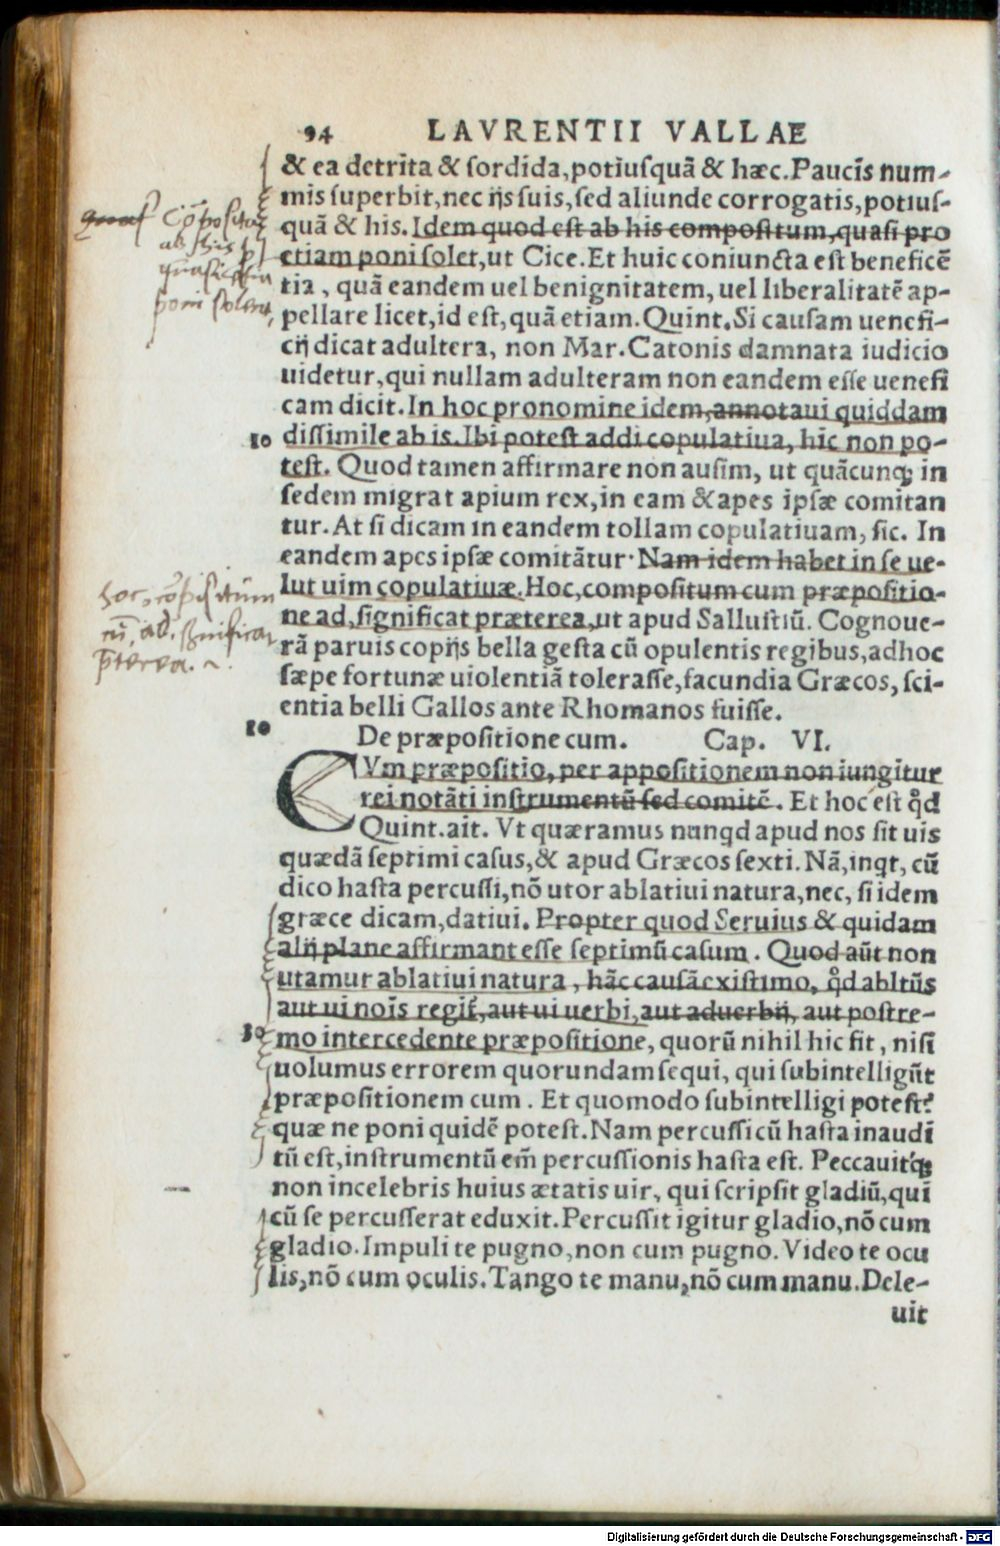 94 LAVRENTII VALLAE
& ea detrita & sordida, potiusquã & hæc. Paucis num-
mis superbit, nec ijs suis, sed aliunde corrogatis, potius-
quã & his. Idem quod est ab his compositum, quasi pro
etiam poni solet, ut Cice. Et huic coniuncta est beneficẽ
tia, quã eandem uel benignitatem, uel liberalitatẽ ap-
pellare licet, id est, quã etiam. Quint. Si causam uenefi-
cij dicat adultera, non Mar. Catonis damnata iudicio
uidetur, qui nullam adulteram non eandem esse uenefi
cam dicit. In hoc pronomine idem, annotaui quiddam
10 dissimile ab is. Ibi potest addi copulatiua, hic non po-
test. Quod tamen affirmare non ausim, ut quãcunqꝫ in
sedem migrat apium rex, in eam & apes ipsæ comitan
tur. At si dicam in eandem tollam copulatiuam, sic. In
eandem apes ipsæ comitãtur. Nam idem habet in se ue-
lut uim copulatiuæ. Hoc, compositum cum præpositio-
ne ad, significat præterea, ut apud Sallustiũ. Cognoue-
rã paruis copijs bella gesta cũ opulentis regibus, adhoc
sæpe fortunæ uiolentiã tolerasse, facundia Græcos, sci-
entia belli Gallos ante Rhomanos fuisse.
20 De præpositione cum. Cap. VI.
CVm præpositio, per appositionem non iungitur
rei notãti instrumentũ sed comitẽ. Et hoc est qđ
Quint. ait. Vt quæramus nunqd apud nos sit uis
quædã septimi casus, & apud Græcos sexti. Nã, inqt, cũ
dico hasta percussi, nõ utor ablatiui natura, nec, si idem
græce dicam, datiui. Propter quod Seruius & quidam
alij plane affirmant esse septimũ casum. Quod aũt non
utamur ablatiui natura, hãc causã existimo, qđ abltũs
aut ui noĩs regit, aut ui uerbi, aut aduerbij, aut postre-
30 mo intercedente præpositione, quorũ nihil hic fit, nisi
uolumus errorem quorundam sequi, qui subintelligũt
præpositionem cum. Et quomodo subintelligi potest?
quæ ne poni quidẽ potest. Nam percussi cũ hasta inaudi
tũ est, instrumentũ em̃ percussionis hasta est. Peccauitqꝫ
non incelebris huius ætatis uir, qui scripsit gladiũ, qui
cũ se percusserat eduxit. Percussit igitur gladio, nõ cum
gladio. Impuli te pugno, non cum pugno. Video te ocu
lis, nõ cum oculis. Tango te manu, nõ cum manu. Dele-
uit
cõposit
ab his p
quasi etiã
poni solent,
hoc, cõpositum
cũ, ad, significat
p̃terea.
Digitalisierung gefördert durch die Deutsche Forschungsgemeinschaft - DFG